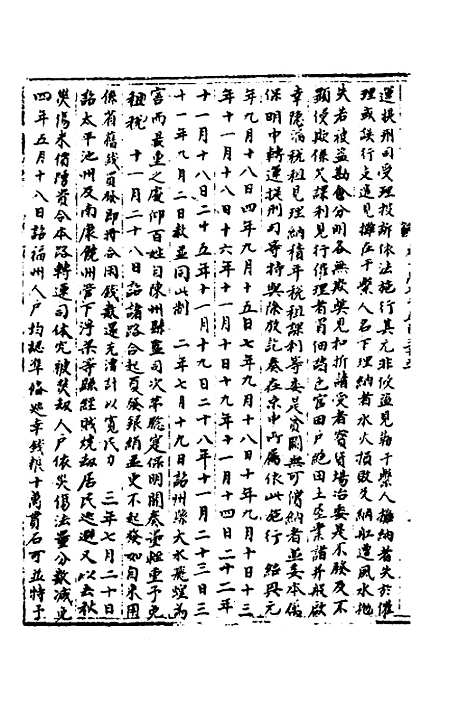 運提刑司受理投訴依法施行其元非侵過見勒干繫人攤納者失於催
理或誤行支過見攤在干繫人名下理納者水火損敗失納舡遭風水拋
失若被盜勘會分明各無欺弊見和折請受者賣貨場治委是不發及不
顯侵欺係欠課利見行催理者買佃隔已官田戶絕田土產業諸并般欺
幸隱漏稅租見理納積年稅租課利等委是貧闕無可償納者並委本
保明申轉運提刑司等特與除放訖奏在京申所屬依此施行 紹興元
年九月十八日四年九月十五日七年九月二十二日十年九月十日十三
年十一月十八日十六年十一月十日十九年十一月十四日二十二年
十一月十八日二十五年十一月十九日二十八年十一月二十三日三
十一年九月二日赦並同此制 二年七月十九日詔州縣大水飛蝗為
害而最重之處仰百姓自陳州縣監司次第聽審保明聞奏量輕重予免
租稅 十一月二十八日詔諸路合起夏發銀絹並更不起發如自來用
係省舊錢買發即將合用錢數還充漕計以寬民力 三年七月二十日
詔太平池州及南康饒州管下浮梁等縣經賊燒劫居民逃避又以去秋
災傷來償陪資令本路轉運司体究被焚劫人戶依災傷法量分數減免
四年五月十八日詔福州人戶均認準俻巡幸錢粮十萬貫石可並特予